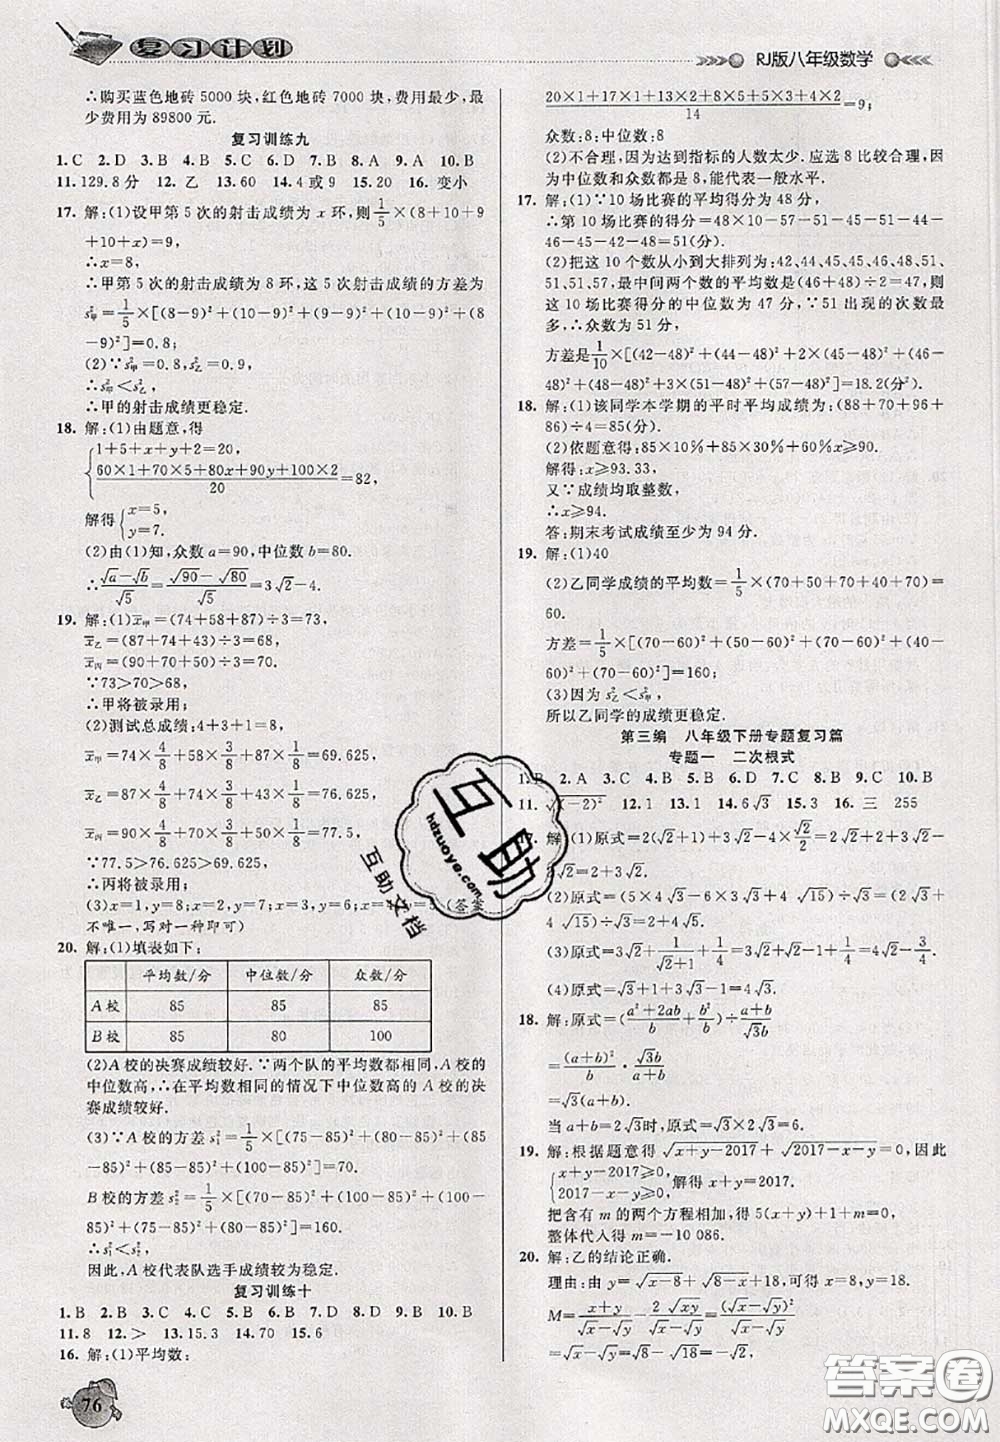 复习计划
RJ版八年级数学
∴购买蓝色地砖 5000 块,红色地砖 7000 块,费用最少,最
少费用为 89800 元.
复习训练九
1. C 2. D 3. B 4. B 5. C 6. D 7. B 8. A 9. A 10. B
11. 129.8 分 12. 乙 13. 60 14. 4 或 9 15. 20 16. 变小
17. 解:(1)设甲第 5 次的射击成绩为 x 环,则 1/5×(8+10+9
+10+x)=9,
∴x=8.
∴甲第 5 次的射击成绩为 8 环,这 5 次射击成绩的方差为
s²甲=1/5×[(8-9)²+(10-9)²+(9-9)²+(10-9)²+(8
-9)²]=0.8;
(2)∵s²甲=0.8,s²乙=2,
∴s²甲<s²乙.
∴甲的射击成绩更稳定.
18. 解:(1)由题意,得
{1+5+x+y+2=20,
(60×1+70×5+80x+90y+100×2)/20=82,
解得{x=5,
y=7.
(2)由(1)知,众数 a=90,中位数 b=80.
∴(√a-√b)/√5=(√90-√80)/√5=3√2-4.
19. 解:(1)x̄甲=(74+58+87)÷3=73,
x̄乙=(87+74+43)÷3=68,
x̄丙=(90+70+50)÷3=70.
∵73>70>68,
∴甲将被录用;
(2)测试总成绩:4+3+1=8,
x̄甲=74×4/8+58×3/8+87×1/8=69.625,
x̄乙=87×4/8+74×3/8+43×1/8=76.625,
x̄丙=90×4/8+70×3/8+50×1/8=77.5,
∵77.5>76.625>69.625,
∴丙将被录用;
(3)x=1,y=8;x=2,y=7;x=3,y=6;x=4,y=5(答案
不唯一,写对一种即可)
20. 解:(1)填表如下:
平均数/分 中位数/分 众数/分
A 校 85 85 85
B 校 85 80 100
(2)A 校的决赛成绩较好.∵两个队的平均数都相同,A 校的
中位数高,∴在平均数相同的情况下中位数高的 A 校的决
赛成绩较好.
(3)∵A 校的方差 s₁²=1/5×[(75-85)²+(80-85)²+
(85-85)²+(85-85)²+(100-85)²]=70,
B 校的方差 s₂²=1/5×[(70-85)²+(100-85)²+(100
-85)²+(75-85)²+(80-85)²]=160.
∴s₁²<s₂².
因此,A 校代表队选手成绩较为稳定.
复习训练十
1. B 2. B 3. A 4. B 5. C 6. B 7. B 8. D 9. C 10. B
11. 8 12. > 13. 15.3 14. 70 15. 6
16. 解:(1)平均数:
76
(20×1+17×1+13×2+8×5+5×3+4×2)/14=9;
众数:8;中位数:8
(2)不合理,因为达到指标的人数太少.应选 8 比较合理,因
为中位数和众数是 8,能代表一般水平.
17. 解:(1)∵10 场比赛的平均得分为 48 分,
∴第 10 场比赛的得分=48×10-57-51-45-51-44-
46-45-42-48=51(分).
(2)把这 10 个数从小到大排列为:42,44,45,45,46,48,51,
51,51,57,最中间两个数的平均数是(46+48)÷2=47,则
这 10 场比赛得分的中位数为 47 分,∵51 出现的次数最
多,∴众数为 51 分,
方差是 1/10×[(42-48)²+(44-48)²+2×(45-48)²+(46-
48)²+(48-48)²+3×(51-48)²+(57-48)²]=18.2(分²)
18. 解:(1)该同学本学期的平时平均成绩为:(88+70+96+
86)÷4=85(分).
(2)依题意得:85×10%+85×30%+60%x≥90.
解得:x≥93.33,
又∵成绩均取整数,
∴x≥94.
答:期末考试成绩至少为 94 分.
19. 解:(1)40
(2)乙同学成绩的平均数=1/5×(70+50+70+40+70)=
60.
方差=1/5×[(70-60)²+(50-60)²+(70-60)²+(40-
60)²+(70-60)²]=160;
(3)因为 s²乙<s²甲,
所以乙同学的成绩更稳定.
第三编 八年级下册专题复习篇
专题一 二次根式
1. B 2. A 3. C 4. B 5. B 6. D 7. C 8. B 9. C 10. B
11. √(-2)² 12. 1 13. 1 14. 6√3 15. 3 16. 三 255
17. 解:(1)原式=2(√2+1)+3√2-4×√2/2=2√2+2+3√2-
2√2=3√2+2.
(2)原式=(5×4√3-6×3√3+4√15)÷√3=(2√3+
4√15)÷√3=2+4√5.
(4)原式=√3+1-√3+1=2.
18. 解:原式=((a²+2ab)/b+b²/b)÷(a+b)/√3b
=(a+b)²/b·√3b/(a+b)
=√3(a+b).
当 a+b=2√3时,原式=√3×2√3=6.
19. 解:根据题意得√(x+y-2017)+√(2017-x-y)=0,因此
{x+y-2017≥0,
2017-x-y≥0,解得 x+y=2017.
把含有 m 的两个方程相加,得 5(x+y)+1+m=0,
整体代入得 m=-10 086.
20. 解:乙的结论正确.
理由:由 y=√(x-8)+√(8-x)+18,可得 x=8,y=18.
互助
hdzuoye.com
互助文档
答案圈
MXQE.COM